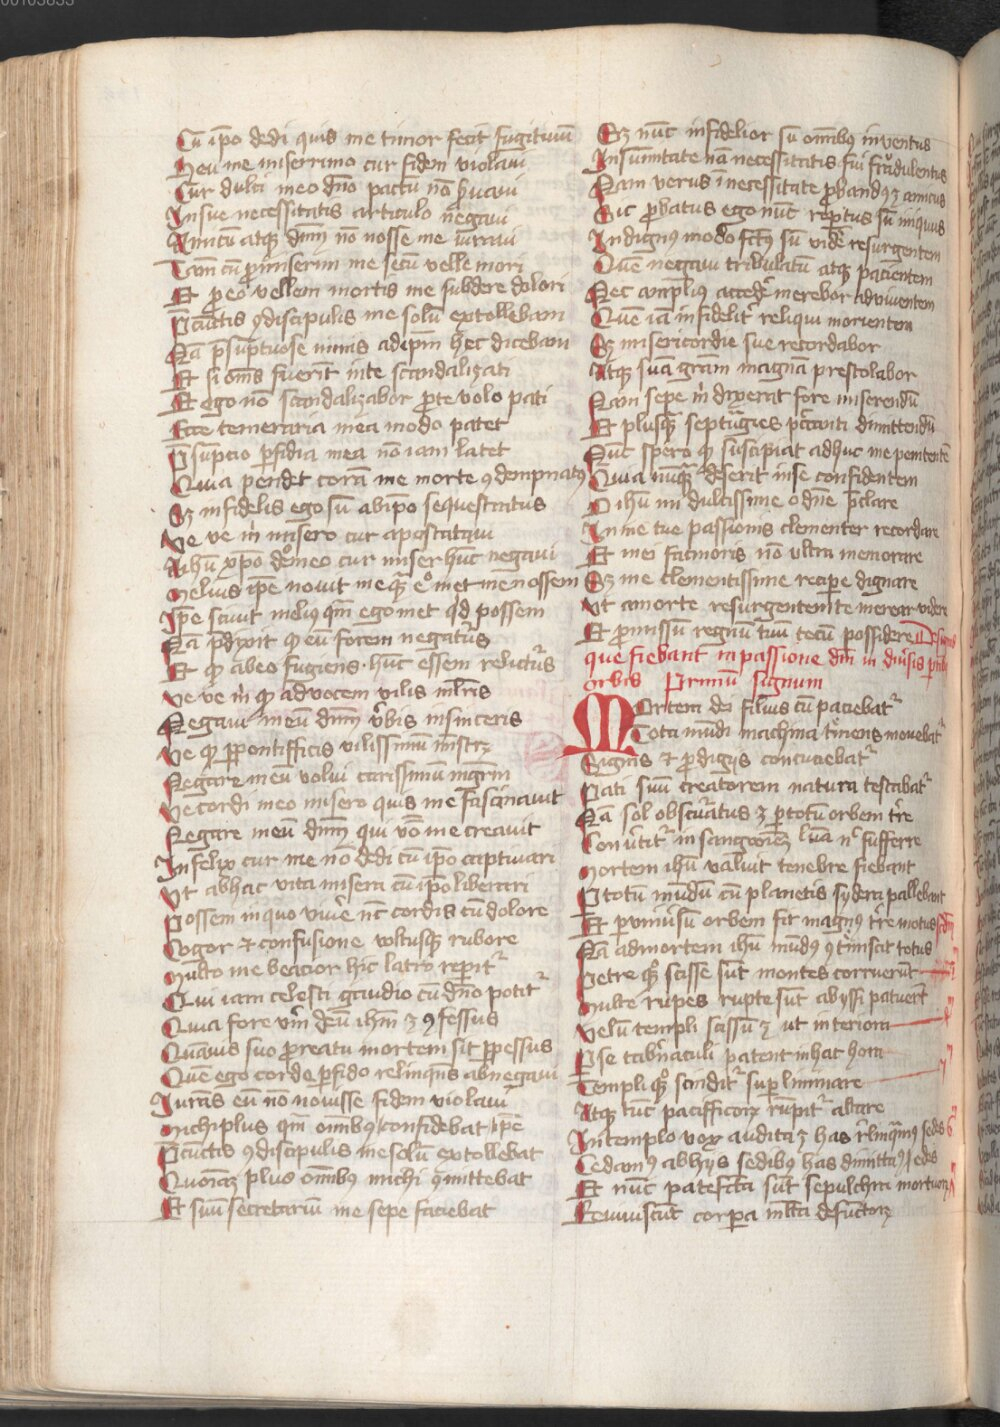 00103855
Cū ip̄o dedi quis me timor fecit fugitiuū
Heu me miserrimo cur fidem violaui
Cur dulci meo dn̄o pactū nō s̄uaui
In sue necessitatis articulo negaui
Amicū atqꝫ dn̄m nō nosse me iuraui
Tam cū ꝓmiserim me secū velle mori
Et ꝑ eo vellem mortis me subdere dolori
P̄ cūctis ꝯdiscipulis me solū extollebam
Nā p̄sūptuose nimis ad ip̄m hec dicebam
Et si om̄s fuerīt in te scandalizati
Et ego nō scandalizabor ꝓ te volo pati
Ecce temeraria mea modo patet
P̄sūpcio ꝑfidia mea nō iam latet
Quia pendet corā me morte ꝯdempnatꝰ
Sꝫ infidelis ego sū ab ip̄o sequestratus
Ve ve m̄ misero cur apostataui
A ihū xp̄o dō meo cur miser hūc negaui
Melius ip̄e nouit me qꝫ egomet me nossem
Ip̄e sciuit meliꝰ qm̄ egomet qͥd possem
Nā p̄dixit qͦ eū forem negatūs
Et qͦ ab eo fugiens hūc essem relictūs
Ve ve m̄ qͦ ad vocem vilis ml̄ris
Negaui meū dn̄m v̄bis insinceris
Ve qͦ ꝑ pontifficis vilissimū mīstrꝫ
Negare meū volui carissimū mgr̄m
Ve cordi meo misero quis me fascinauit
Negare meū dn̄m qui vō me creauit
Infelix cur me nō dedi cū ip̄o captiuari
Vt ab hac vita misera cū ip̄o liberari
Possem in quo viūe nc̄ cordis cū dolore
Cogor et confusione vultusqꝫ rubore
Multo me beacior hic latro rep̄it᷑
Qui iam celesti gaudio cū dn̄o potit᷑
Quia fore vm̄ deū ihm̄ ꝫ ꝯfessus
Quāuis suo ꝓ reatu mortem sit ꝑpessus
Quē ego corde ꝑfido relinquēs abnegaui
Iurās eū nō nouisse fidem violaui
Michi plus qm̄ om̄ibꝰ confidebat ip̄e
P̄ cūctis ꝯdiscipulis me solū extollebat
Quoniā plus om̄ibꝰ michi ꝯmittebat
Et suū secretariū me sepe faciebat
Sꝫ nūc infidelior sū om̄ibus inuentus
In sum̄itate nā necessitatis fui fraudulentus
Nam verus ī necessitate ꝓbandꝰ ꝫ amicus
Sic ꝓbatus ego nūc rep̄tus sū iniquus
Indignꝰ modo fctꝰ sū vidē resurgentem
Quē negaui tribulatū atqꝫ pacientem
Nec ampliꝰ accedē merebor ad viuentem
Quē iā infidelit᷑ reliqui morientem
Sꝫ misericordie sue recordabor
Atqꝫ suā grām magnā prestolabor
Nam sepe m̄ dixerat fore miserendū
Et plusqꝫ septuagies p̄canti dimittendū
Nūc spero qͦ suscipiat adhuc me penitentē
Quia nūqꝫ deserit in se confidentem
O ihū mi dulcissime o dn̄e p̄clare
In me tue passionis clementer recordare
Et mei facinoris nō vltra memorare
Sꝫ me clementissime recipe dignare
Vt a morte resurgentem te merear videre
Et ꝓmissū regnū tuū tecū possidere De signis
que fiebant in passione dn̄i in diūsis ꝑtibꝰ
orbis Primū signum
Mortem dei filius cū paciebat᷑
Tota mūdi machina tīmens mouebat᷑
Signis et ꝓdigijs concuciebat᷑
Pati suū creatorem natura testabat᷑
Nā sol obscuratus ꝫ ꝑ totū orbem tr̄e
Conūtit᷑ in sangwinē luna nͦ sufferre
Mortem ihū valuit tenebre fiebant
P totū mūdū cū planetis sydera pallebant
Et ꝑ vniūsū orbem fit magnꝰ tr̄e motus scd̄m
Nā ad mortem ihū mūdꝰ ꝯtīmscit totus
Petre qͦqꝫ scisse sūt montes corruerūt
Multe rupes rupte sūt abyssi patuerūt
Velū templi scissū ꝫ ut interiora
Ip̄se tab̄naculi patent in hac hora
Templi qͦqꝫ scindit᷑ suꝑliminare
Atqꝫ tūc pacifficorꝫ rūpit᷑ altare
In templo vox audita ꝫ has rl̄inqͣmꝰ sedes 6
Cedamꝰ ab hijs sedibꝰ has dimittamꝰ edes
Et nūc patefcā sūt sepulchra mortuorꝫ
Reuiuiscūt corꝑa ml̄ta defūctorꝫ